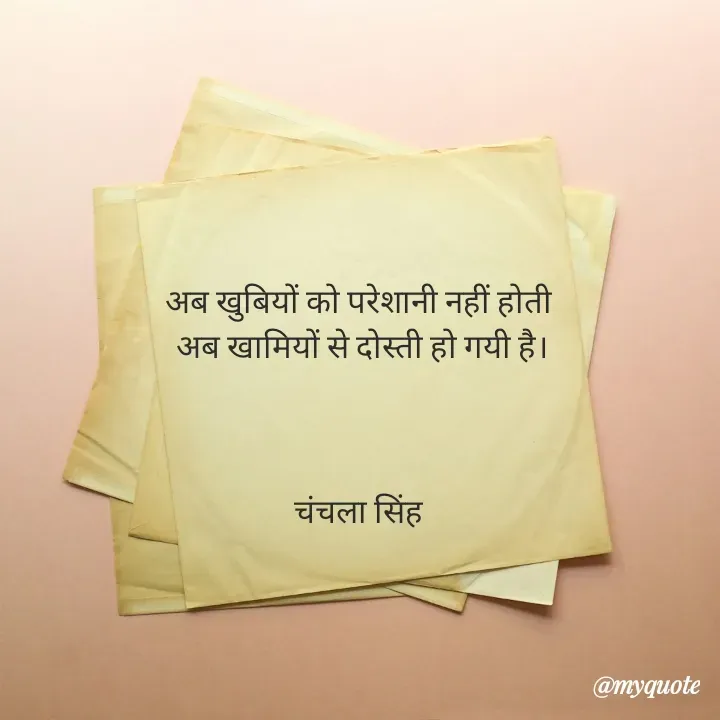 अब खुबियों को परेशानी नहीं होती
अब खामियों से दोस्ती हो गयी है।
चंचला सिंह
@myquote